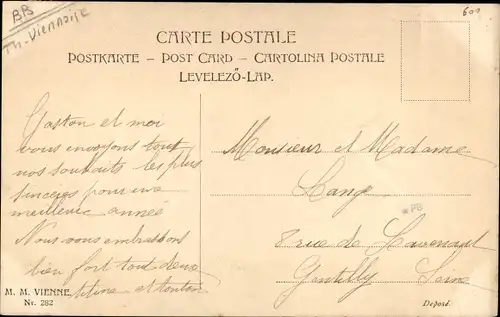 BB
Th. Viennoise
600
CARTE POSTALE
POSTKARTE – POST CARD – CARTOLINA POSTALE
LEVELEZŐ-LAP.
Gaston et moi
vous envoyons tout
nos souhaits les plus
sincères pour une
meilleure année
Nous vous embrassons
bien fort tout deux
Titine et tonton
Monsieur et Madame
Lange
8 rue de
Gentilly Seine
M. M. VIENNE
Nr. 282
Deposé.